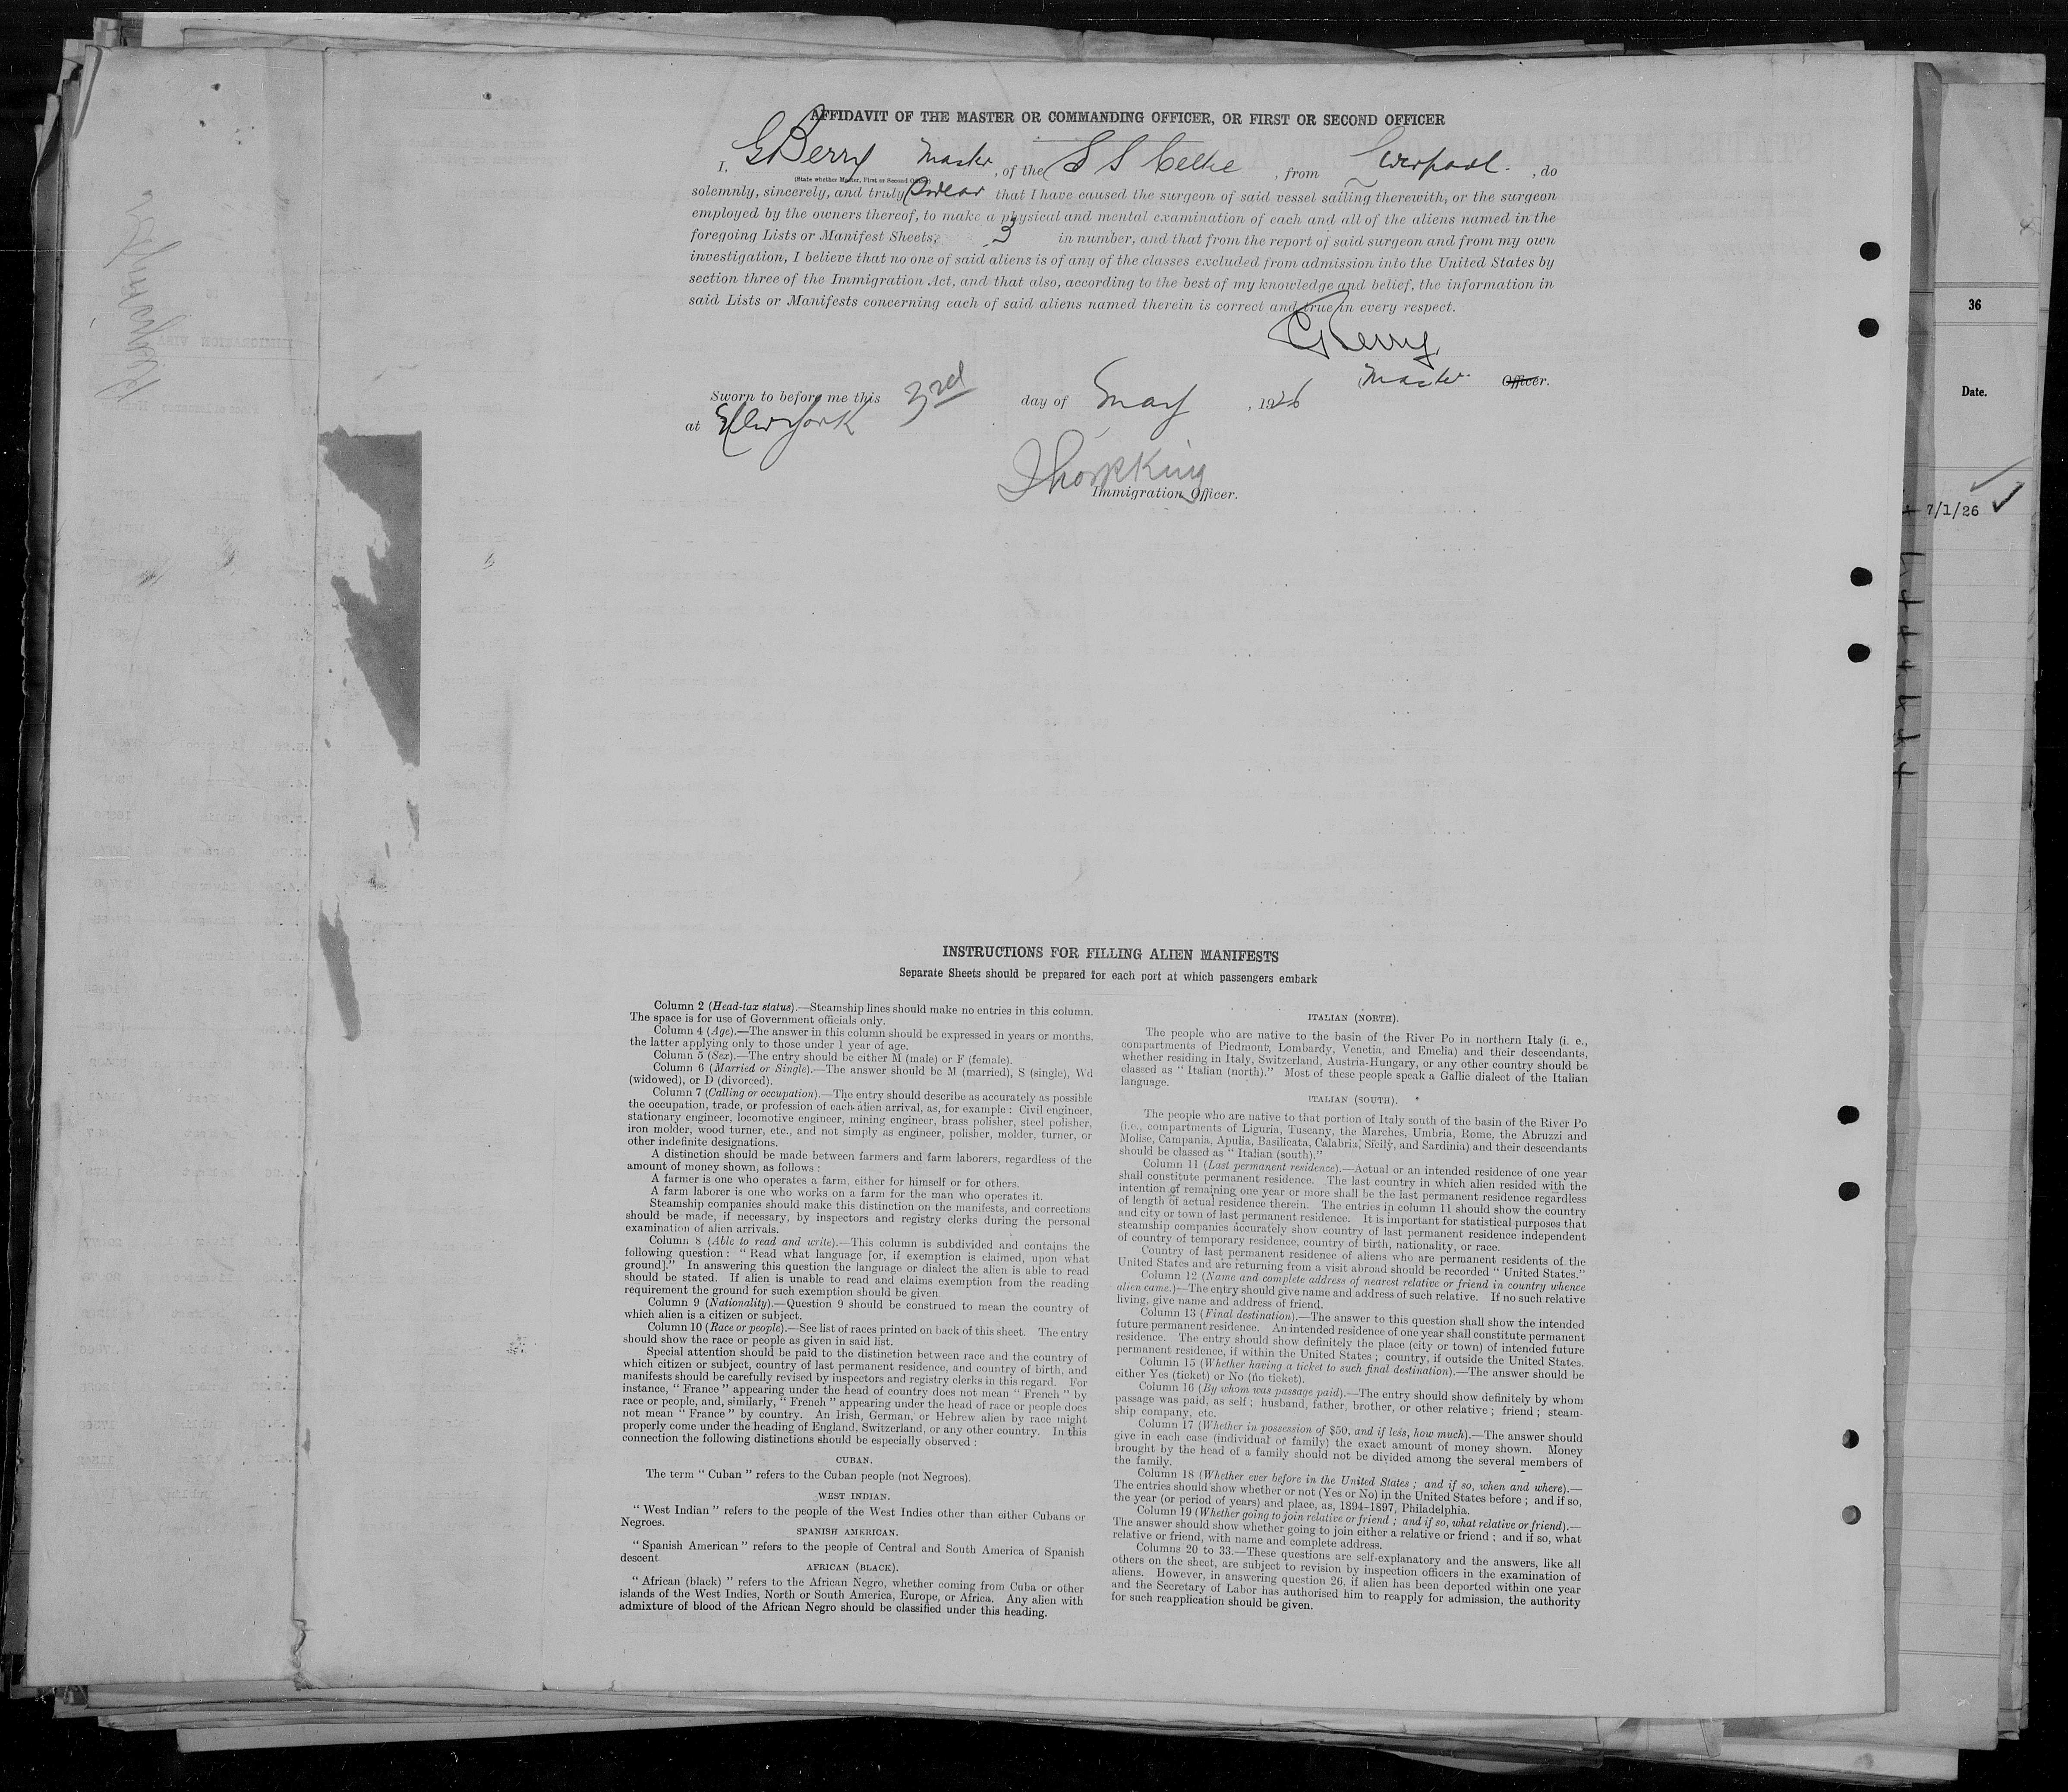 AFFIDAVIT OF THE MASTER OR COMMANDING OFFICER, OR FIRST OR SECOND OFFICER
I, G Berry Master, of the S S Celtic, from Liverpool., do
(State whether Master, First or Second Officer)
solemnly, sincerely, and truly swear that I have caused the surgeon of said vessel sailing therewith, or the surgeon
employed by the owners thereof, to make a physical and mental examination of each and all of the aliens named in the
foregoing Lists or Manifest Sheets, 3 in number, and that from the report of said surgeon and from my own
investigation, I believe that no one of said aliens is of any of the classes excluded from admission into the United States by
section three of the Immigration Act, and that also, according to the best of my knowledge and belief, the information in
said Lists or Manifests concerning each of said aliens named therein is correct and true in every respect.
G Berry
Master Officer.
Sworn to before me this 3rd day of May, 1926
at New York
Immigration Officer.
36
Date.
7/1/26
INSTRUCTIONS FOR FILLING ALIEN MANIFESTS
Separate Sheets should be prepared for each port at which passengers embark
Column 2 (Head-tax status).—Steamship lines should make no entries in this column.
The space is for use of Government officials only.
Column 4 (Age).—The answer in this column should be expressed in years or months,
the latter applying only to those under 1 year of age.
Column 5 (Sex).—The entry should be either M (male) or F (female).
Column 6 (Married or Single).—The answer should be M (married), S (single), Wd
(widowed), or D (divorced).
Column 7 (Calling or occupation).—The entry should describe as accurately as possible
the occupation, trade, or profession of each alien arrival, as, for example : Civil engineer,
stationary engineer, locomotive engineer, mining engineer, brass polisher, steel polisher,
iron molder, wood turner, etc., and not simply as engineer, polisher, molder, turner, or
other indefinite designations.
A distinction should be made between farmers and farm laborers, regardless of the
amount of money shown, as follows :
A farmer is one who operates a farm, either for himself or for others.
A farm laborer is one who works on a farm for the man who operates it.
Steamship companies should make this distinction on the manifests, and corrections
should be made, if necessary, by inspectors and registry clerks during the personal
examination of alien arrivals.
Column 8 (Able to read and write).—This column is subdivided and contains the
following question : " Read what language [or, if exemption is claimed, upon what
ground]." In answering this question the language or dialect the alien is able to read
should be stated. If alien is unable to read and claims exemption from the reading
requirement the ground for such exemption should be given
Column 9 (Nationality).—Question 9 should be construed to mean the country of
which alien is a citizen or subject.
Column 10 (Race or people).—See list of races printed on back of this sheet. The entry
should show the race or people as given in said list.
Special attention should be paid to the distinction between race and the country of
which citizen or subject, country of last permanent residence, and country of birth, and
manifests should be carefully revised by inspectors and registry clerks in this regard. For
instance, " France " appearing under the head of country does not mean " French " by
race or people, and, similarly, " French " appearing under the head of race or people does
not mean " France " by country. An Irish, German, or Hebrew alien by race might
properly come under the heading of England, Switzerland, or any other country. In this
connection the following distinctions should be especially observed :
CUBAN.
The term " Cuban " refers to the Cuban people (not Negroes).
WEST INDIAN.
" West Indian " refers to the people of the West Indies other than either Cubans or
Negroes.
SPANISH AMERICAN.
" Spanish American " refers to the people of Central and South America of Spanish
descent
AFRICAN (BLACK).
" African (black) " refers to the African Negro, whether coming from Cuba or other
islands of the West Indies, North or South America, Europe, or Africa. Any alien with
admixture of blood of the African Negro should be classified under this heading.
ITALIAN (NORTH).
The people who are native to the basin of the River Po in northern Italy (i. e.,
compartments of Piedmont, Lombardy, Venetia, and Emelia) and their descendants,
whether residing in Italy, Switzerland, Austria-Hungary, or any other country should be
classed as " Italian (north)." Most of these people speak a Gallic dialect of the Italian
language.
ITALIAN (SOUTH).
The people who are native to that portion of Italy south of the basin of the River Po
(i.e., compartments of Liguria, Tuscany, the Marches, Umbria, Rome, the Abruzzi and
Molise, Campania, Apulia, Basilicata, Calabria, Sicily, and Sardinia) and their descendants
should be classed as " Italian (south)."
Column 11 (Last permanent residence).—Actual or an intended residence of one year
shall constitute permanent residence. The last country in which alien resided with the
intention of remaining one year or more shall be the last permanent residence regardless
of length of actual residence therein. The entries in column 11 should show the country
and city or town of last permanent residence. It is important for statistical purposes that
steamship companies accurately show country of last permanent residence independent
of country of temporary residence, country of birth, nationality, or race.
Country of last permanent residence of aliens who are permanent residents of the
United States and are returning from a visit abroad should be recorded " United States."
Column 12 (Name and complete address of nearest relative or friend in country whence
alien came.)—The entry should give name and address of such relative. If no such relative
living, give name and address of friend.
Column 13 (Final destination).—The answer to this question shall show the intended
future permanent residence. An intended residence of one year shall constitute permanent
residence. The entry should show definitely the place (city or town) of intended future
permanent residence, if within the United States ; country, if outside the United States.
Column 15 (Whether having a ticket to such final destination).—The answer should be
either Yes (ticket) or No (no ticket).
Column 16 (By whom was passage paid).—The entry should show definitely by whom
passage was paid, as self ; husband, father, brother, or other relative ; friend ; steam-
ship company, etc.
Column 17 (Whether in possession of $50, and if less, how much).—The answer should
give in each case (individual or family) the exact amount of money shown. Money
brought by the head of a family should not be divided among the several members of
the family.
Column 18 (Whether ever before in the United States ; and if so, when and where).—
The entries should show whether or not (Yes or No) in the United States before ; and if so,
the year (or period of years) and place, as, 1894-1897, Philadelphia.
Column 19 (Whether going to join relative or friend ; and if so, what relative or friend).—
The answer should show whether going to join either a relative or friend ; and if so, what
relative or friend, with name and complete address.
Columns 20 to 33.—These questions are self-explanatory and the answers, like all
others on the sheet, are subject to revision by inspection officers in the examination of
aliens. However, in answering question 26, if alien has been deported within one year
and the Secretary of Labor has authorised him to reapply for admission, the authority
for such reapplication should be given.